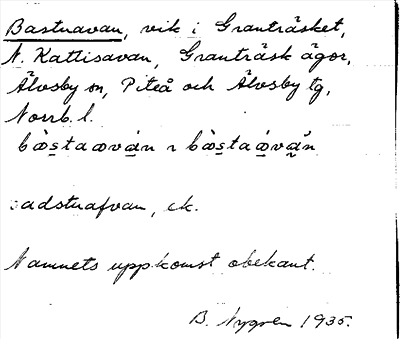 Bastuavan, vik i Granträsket,
N. Kattisavan, Granträsk ägor,
Älvsby sn, Piteå och Älvsby tg,
Norrb. l.
badstuafvan, ek.
Namnets uppkomst obekant.
B. Nygren 1935.